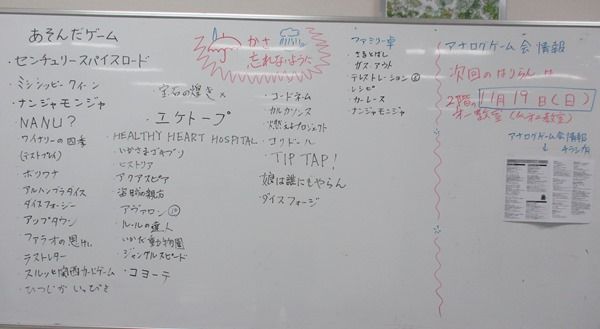 あそんだゲーム
・センチュリースパイスロード
・ミシシッピークィーン
・ナンジャモンジャ
・NANU?
・ワイナリーの四季
(テストプレイ)
・ボリウナ
・アルハンブラダイス
・ダイスフォージ
・アップタウン
・ファラオの恩恵
・ラストレター
・スルッと関西カードゲーム
・ひつじがいっぴき
・宝石の煌き×
・エケトープ
・HEALTHY HEART HOSPITAL
・いかさまゴキブリ
・ヒストリア
・アクアスピア
・盗賊の親方
・アヴァロン
・ルールの達人
・いかだ動物園
・ジャングルスピード
・コヨーテ
かさ
忘れないように
・コードネーム
・カルカソンヌ
・燃えよプロジェクト
・コリドール
・TIP TAP!
・娘は誰にもやらん
・ダイスフォージ
ファミリー卓
・さるとばし
・ガスアウト
・テレストレーション②
・レシピ
・カーレース
・ナンジャモンジャ
アナログゲーム会情報
次回のはりらんは
11月19日(日)
2階の
アナログゲーム会情報
↓チラシ有